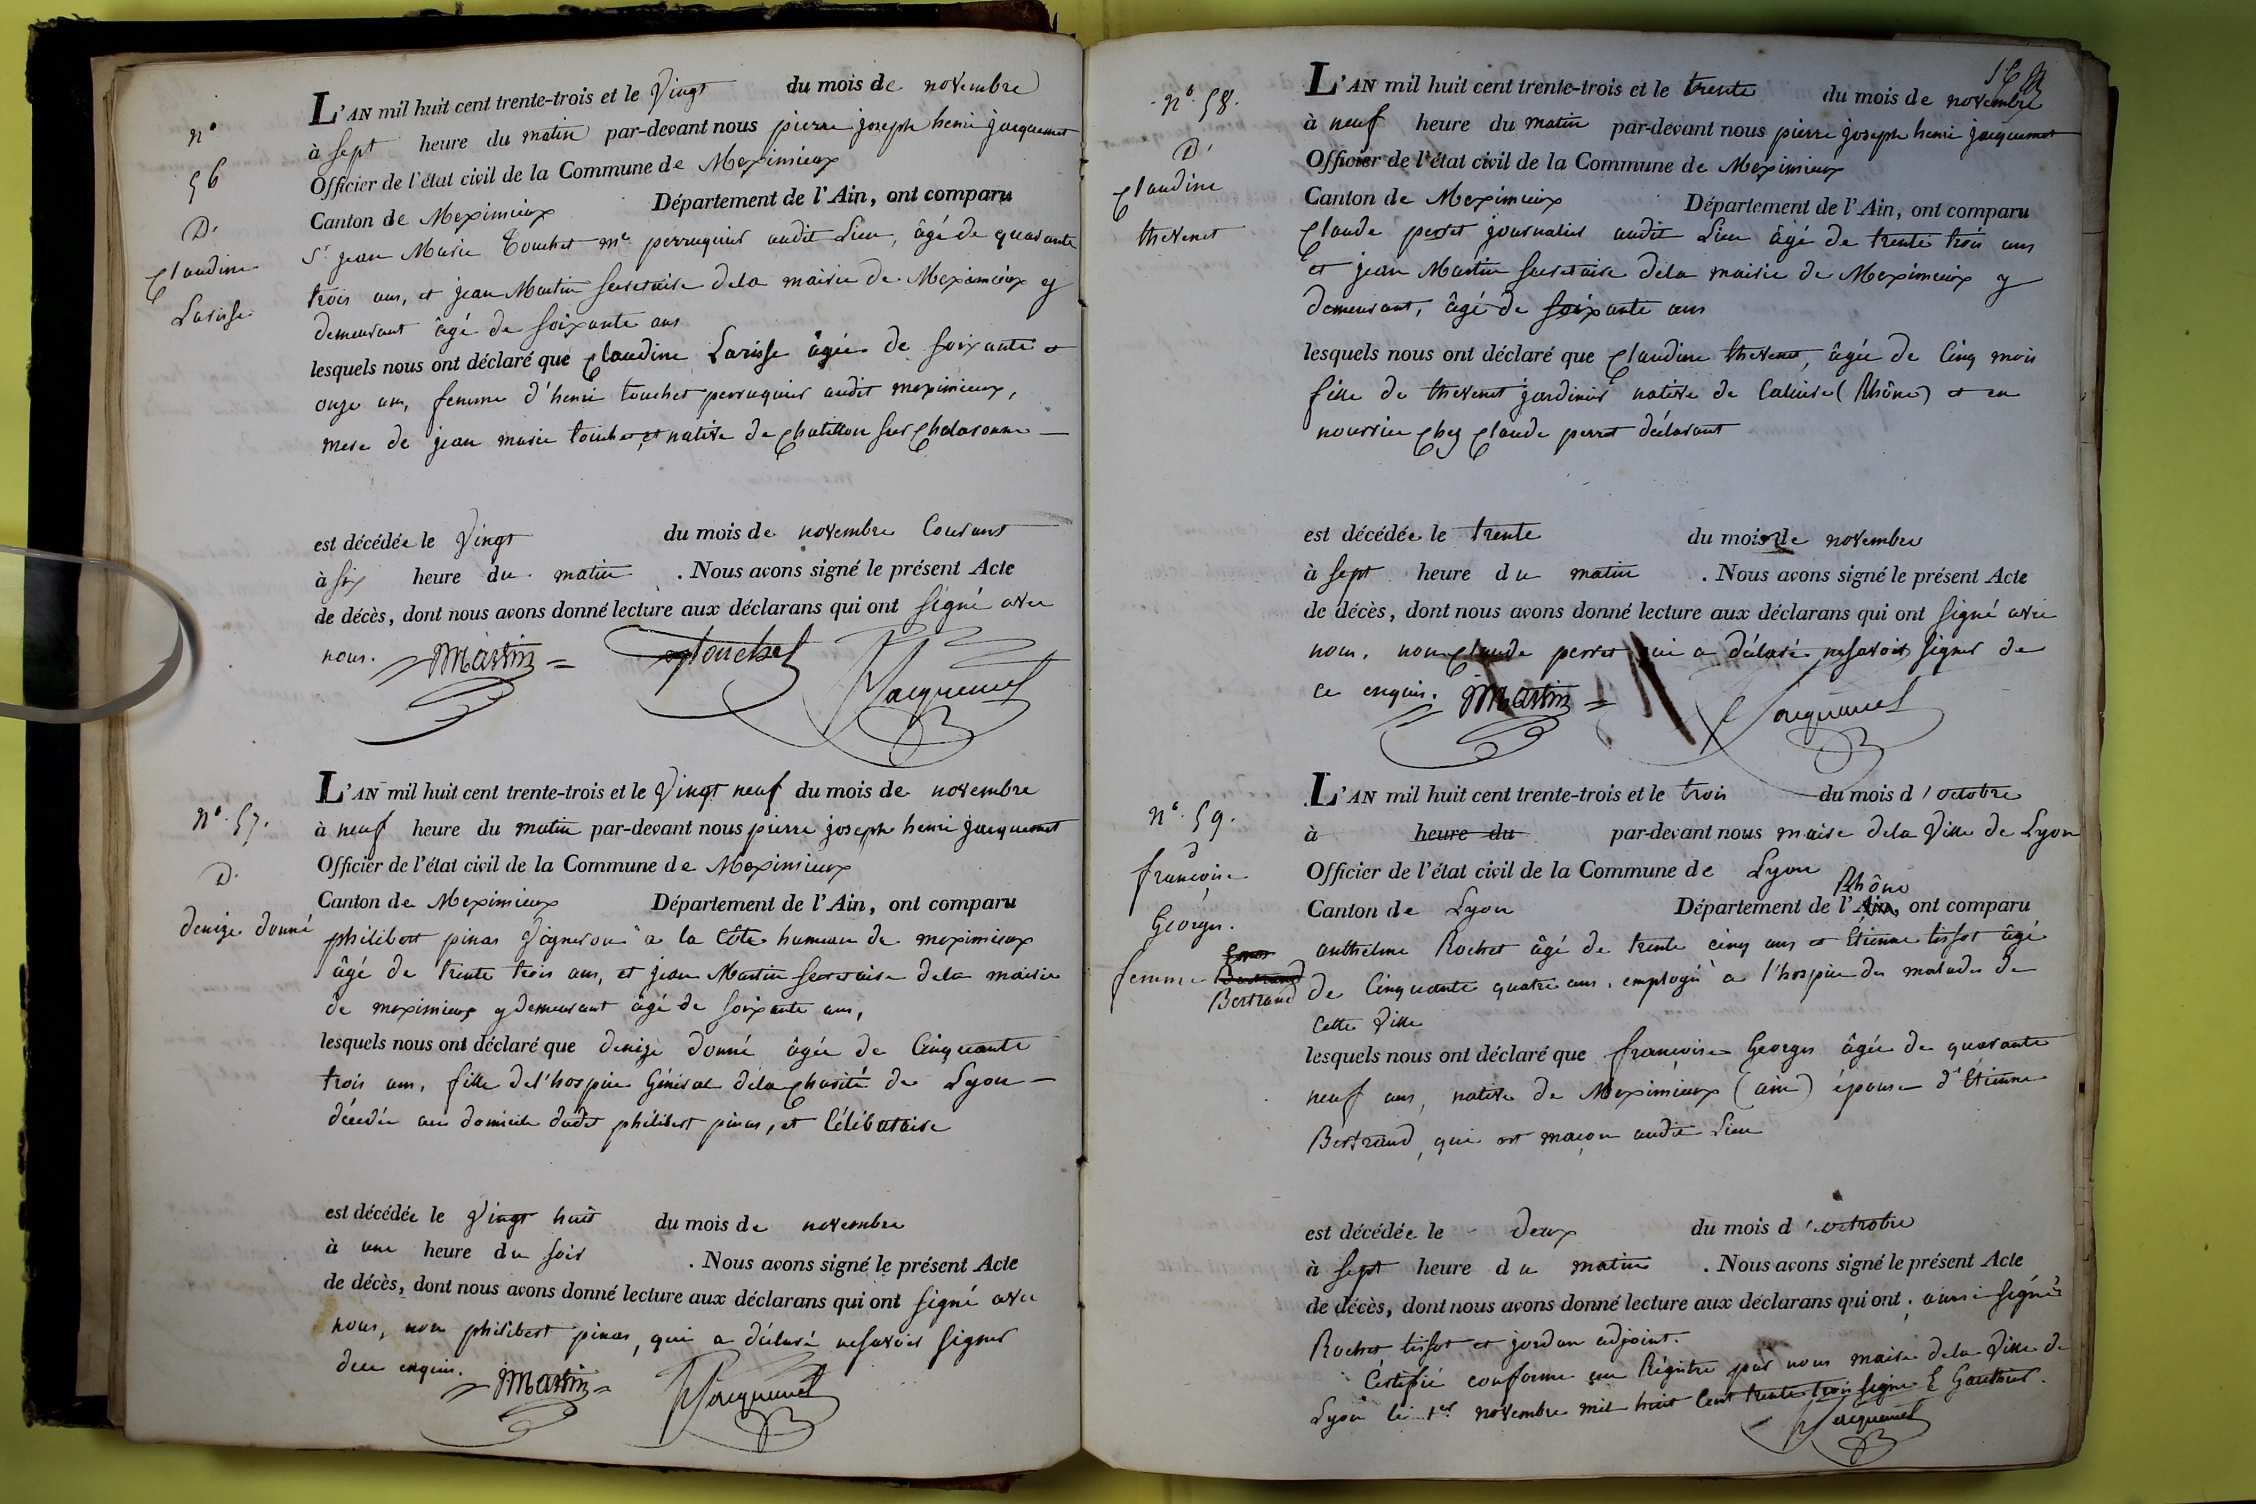 n°
56
D.
Claudine
Larisse
L'AN mil huit cent trente-trois et le Vingt du mois de novembre
à sept heure du matin par-devant nous pierre joseph henri jacquemet
Officier de l'état civil de la Commune de Meximieux
Canton de Meximieux Département de l'Ain, ont comparu
Sr jean Marie Touchet me perruquier audit Lieu, âgé de quarante
trois ans, et jean Martin secretaire dela mairie de Meximieux y
demeurant âgé de soixante ans
lesquels nous ont déclaré que Claudine Larisse âgée de soixante et
onze ans, femme d'henri touchet perruquier audit meximieux,
mere de jean marie touchet, et native de Chatillon sur Chalaronne
est décédée le Vingt du mois de novembre Courant
à six heure du matin . Nous avons signé le présent Acte
de décès, dont nous avons donné lecture aux déclarans qui ont signé avec
nous. JMartin Touchet Jacquemet
n° 57.
D.
denize donné
L'AN mil huit cent trente-trois et le Vingt neuf du mois de novembre
à neuf heure du matin par-devant nous pierre joseph henri jacquemet
Officier de l'état civil de la Commune de Meximieux
Canton de Meximieux Département de l'Ain, ont comparu
philibert pinas Vigneron a la Côte hameau de meximieux
âgé de trente trois ans, et jean Martin secretaire dela mairie
de meximieux y demeurant âgé de soixante ans,
lesquels nous ont déclaré que denize donné âgée de Cinquante
trois ans, fille del'hospice Général dela Charité de Lyon
décédée au domicile dudit philibert pinas, et Célibataire
est décédée le Vingt huit du mois de novembre
à une heure du soir . Nous avons signé le présent Acte
de décès, dont nous avons donné lecture aux déclarans qui ont signé avec
nous, non philibert pinas, qui a déclaré nesavoir signer
dece enquis. JMartin Jacquemet
n° 58.
D.
Claudine
thevenet
L'AN mil huit cent trente-trois et le trente du mois de novembre
à neuf heure du matin par-devant nous pierre joseph henri jacquemet
Officier de l'état civil de la Commune de Meximieux
Canton de Meximieux Département de l'Ain, ont comparu
Claude perret journalier audit Lieu âgé de trente trois ans
et jean Martin secretaire dela mairie de Meximieux y
demeurant, âgé de soixante ans
lesquels nous ont déclaré que Claudine thevenet, âgée de Cinq mois
fille de thevenet jardinier native de Caluire (Rhône) et en
nourrice Chez Claude perret déclarant
est décédée le trente du mois de novembre
à sept heure du matin . Nous avons signé le présent Acte
de décès, dont nous avons donné lecture aux déclarans qui ont signé avec
nous, non Claude perret qui a déclaré nesavoir signer de
ce enquis. JMartin Jacquemet
n° 59.
d
francoise
Georges.
femme Bertrand
Bertrand
L'AN mil huit cent trente-trois et le trois du mois d'octobre
à heure du par-devant nous maire dela Ville de Lyon
Officier de l'état civil de la Commune de Lyon
Rhône
Canton de Lyon Département de l'Ain, ont comparu
anthelme Rochet âgé de trente cinq ans et Etienne tissot âgé
de Cinquante quatre ans, employés a l'hospice des malades de
Cette Ville
lesquels nous ont déclaré que francoise Georges âgée de quarante
neuf ans, native de Meximieux (ain) épouse d'Etienne
Bertrand, qui est maçon audit Lieu
est décédée le deux du mois d'octobre
à sept heure du matin . Nous avons signé le présent Acte
de décès, dont nous avons donné lecture aux déclarans qui ont, ainsi signés
Rochet tissot et jordan adjoint.
Certifié conforme au Régistre par nous maire dela Ville de
Lyon le 1er novembre mil huit Cent trente trois signé E Gauthier.
Jacquemet